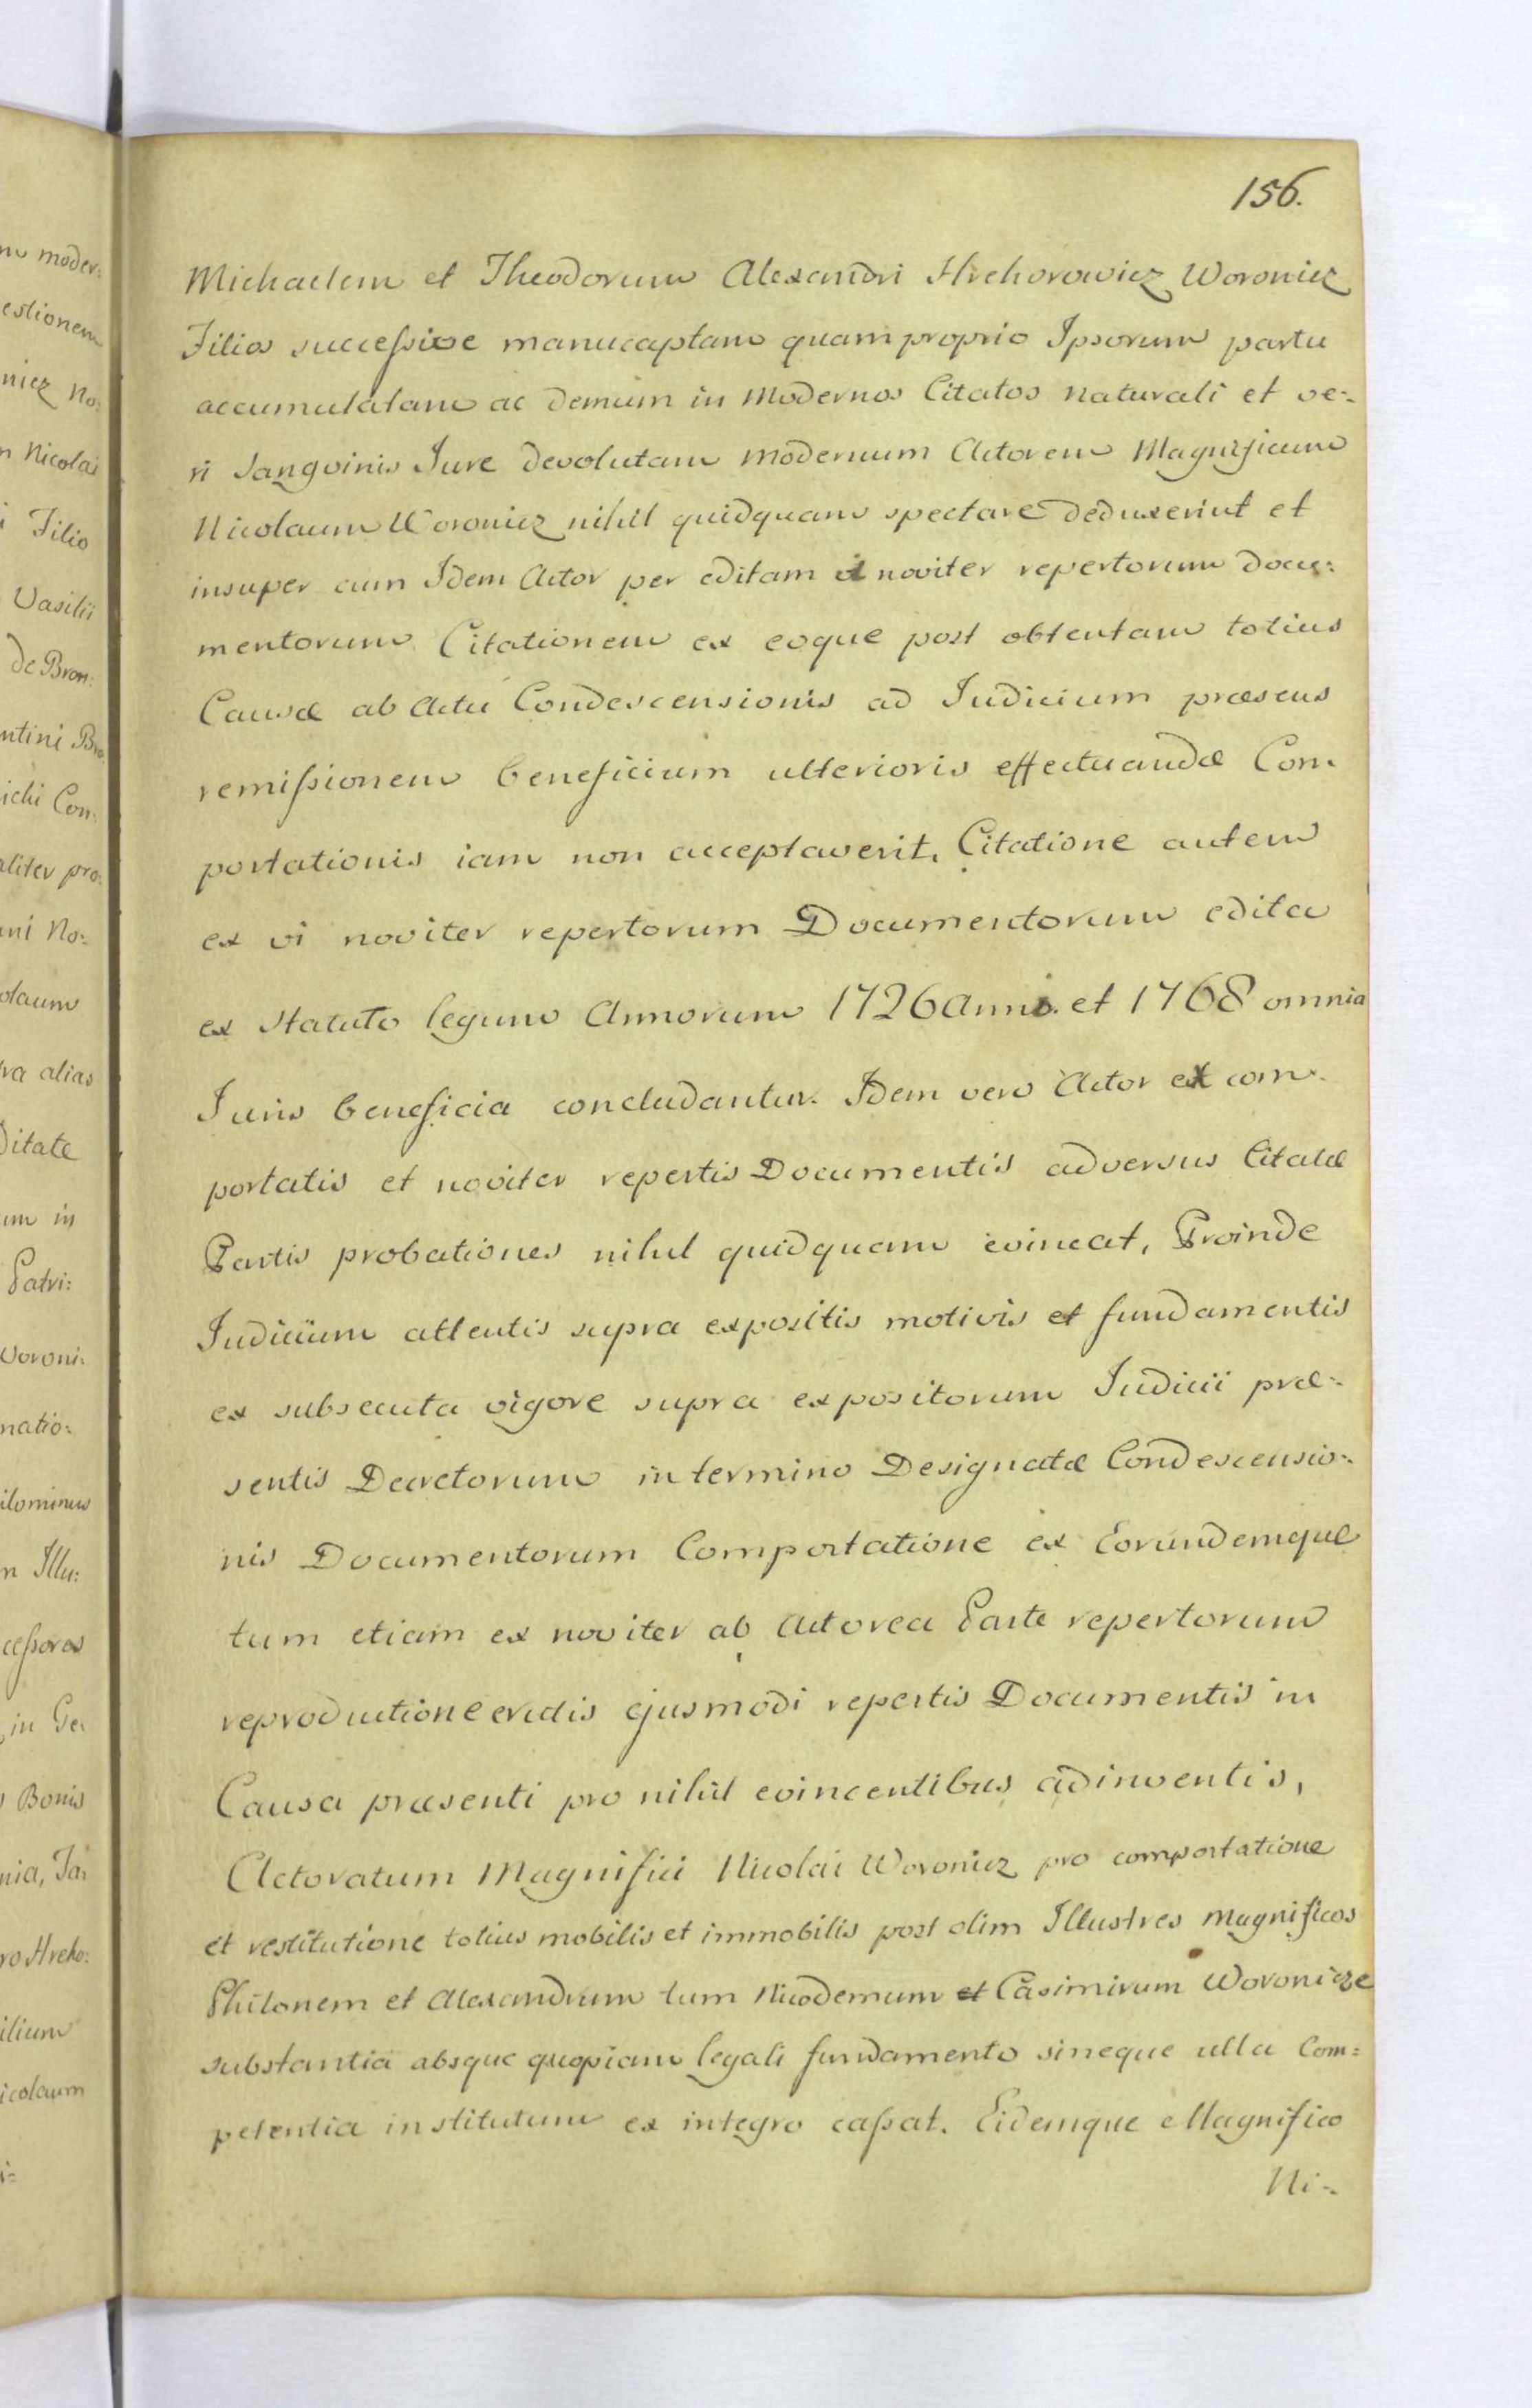 156.
nu moder:
Michaelem et Theodorum Alexandri Hrehorowicz Woronicz
estionem
Filios successive manucaptam quam proprio Ipsorum partu
nicz No:
accumulatam ac demum in Modernos Citatos naturali et ve:
n Nicolai
ri Sangvinis Jure devolutam modernum Actorem Magnificum
i Filio
Nicolaum Woronicz nihil quidquam spectare deduxerint et
Vasilii
insuper cum Idem Actor per editam noviter repertorum docu:
de Bron:
mentorum Citationem ex eoque post obtentam totius
ntini Bro
Causæ ab Actu Condescensionis ad Iudicium præsens
ichi Con:
remissionem beneficium ulterioris effectuandæ Com:
aliter pro:
portationis iam non acceptaverit. Citatione autem
ani No:
ex vi noviter repertorum Documentorum edita
olaum
ex Statuto legum Annorum 1726 Anno. et 1768 omnia
va alias
Iuris beneficia concludantur. Idem vero Actor ex com:
ditate
portatis et noviter repertis Documentis adversus Citatæ
um in
Partis probationes nihil quidquam evincat, Proinde
Patri:
Iudicium attentis supra expositis motivis et fundamentis
Voroni:
ex subsecuta vigore supra expositorum Iudicii præ:
natio:
sentis Decretorum in termino Designatæ Condescensio:
ilominus
nis Documentorum Comportatione ex Eorundemque
n Illu:
tum etiam ex noviter ab Actorea Parte repertorum
cessores
reproductione evidis ejusmodi repertis Documentis in
in Ge:
Causa præsenti pro nihil evincentibus adinventis,
Bonis
Actoratum Magnifici Nicolai Woronicz pro comportatione
nia, Ja:
et restitutione totius mobilis et immobilis post olim Illustres Magnificos
ro Hreho:
Philonem et Alexandrum tum Nicodemum et Casimirum Woronicze
ilium
substantia absque quopiam legali fundamento sineque ulla Com:
icolaum
petentia institutum ex integro cassat. Eidemque Magnifico
i:
Ni: